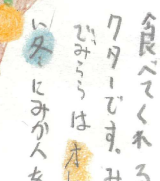 食べてくれる
クターです。み
でみららは オ
い冬にみか人を